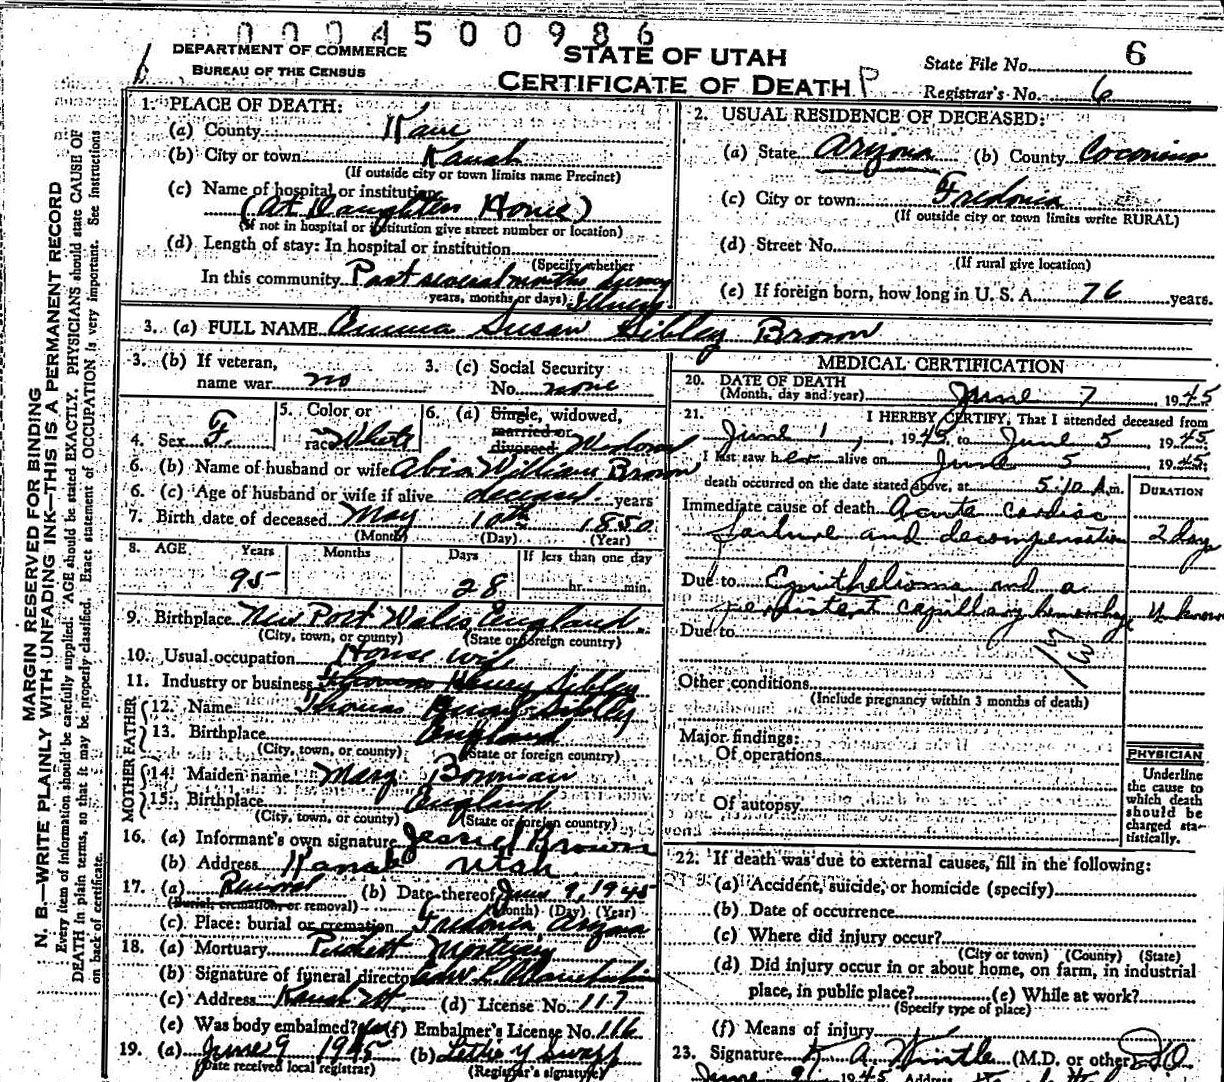 0004500986
DEPARTMENT OF COMMERCE
BUREAU OF THE CENSUS
STATE OF UTAH
CERTIFICATE OF DEATH P
State File No. 6
Registrar's No. 6
MARGIN RESERVED FOR BINDING
N. B.—WRITE PLAINLY WITH UNFADING INK—THIS IS A PERMANENT RECORD
Every item of information should be carefully supplied. AGE should be stated EXACTLY. PHYSICIANS should state CAUSE OF
DEATH in plain terms, so that it may be properly classified. Exact statement of OCCUPATION is very important. See instructions
on back of certificate.
1. PLACE OF DEATH:
(a) County Kane
(b) City or town Kanab
(If outside city or town limits name Precinct)
(c) Name of hospital or institution
(At Daughters Home)
(If not in hospital or institution give street number or location)
(d) Length of stay: In hospital or institution
(Specify whether
In this community Past several months during
years, months or days) Illness
2. USUAL RESIDENCE OF DECEASED:
(a) State Arizona (b) County Coconino
(c) City or town Fredonia
(If outside city or town limits write RURAL)
(d) Street No.
(If rural give location)
(e) If foreign born, how long in U. S. A. 76 years.
3. (a) FULL NAME Emma Susan Sibley Brown
3. (b) If veteran,
name war no
3. (c) Social Security
No. none
4. Sex F.
5. Color or
race White
6. (a) Single, widowed,
married or
divorced Widowed
6. (b) Name of husband or wife Abia William Brown
6. (c) Age of husband or wife if alive deceased years
7. Birth date of deceased May 10th 1850
(Month) (Day) (Year)
8. AGE Years Months Days If less than one day
95 28 hr. min.
9. Birthplace New Port Wales England
(City, town, or county) (State or foreign country)
10. Usual occupation House wife
11. Industry or business Thomas Henry Sibley
FATHER
12. Name Thomas Sibley
13. Birthplace England
(City, town, or county) (State or foreign country)
MOTHER
14. Maiden name Mary Bowman
15. Birthplace England
(City, town, or county) (State or foreign country)
16. (a) Informant's own signature Brown
(b) Address Kanab Utah
17. (a) Removal (b) Date thereof June 9, 1945
(Burial, cremation or removal) (Month) (Day) (Year)
(c) Place: burial or cremation Fredonia, Arizona
18. (a) Mortuary Mortuary
(b) Signature of funeral director
(c) Address Kanab Ut. (d) License No. 117
(e) Was body embalmed? yes (f) Embalmer's License No. 116
19. (a) June 9 1945 (b) Swapp
(Date received local registrar) (Registrar's signature)
MEDICAL CERTIFICATION
20. DATE OF DEATH
(Month, day and year) June 7 1945
21. I HEREBY CERTIFY, That I attended deceased from
June 1, 1945, to June 5 1945
I last saw her alive on June 5 1945;
death occurred on the date stated above, at 5:10 A.m.
DURATION
Immediate cause of death Acute cardiac
failure and decompensation 2 day
Due to Epithelioma and a
persistent capillary hemorrhage Unknown
Due to
Other conditions
(Include pregnancy within 3 months of death)
Major findings:
Of operations
Of autopsy
PHYSICIAN
Underline
the cause to
which death
should be
charged sta-
tistically.
22. If death was due to external causes, fill in the following:
(a) Accident, suicide, or homicide (specify)
(b) Date of occurrence
(c) Where did injury occur?
(City or town) (County) (State)
(d) Did injury occur in or about home, on farm, in industrial
place, in public place? (e) While at work?
(Specify type of place)
(f) Means of injury
23. Signature A. (M.D. or other) DO
June 9 1945 Address